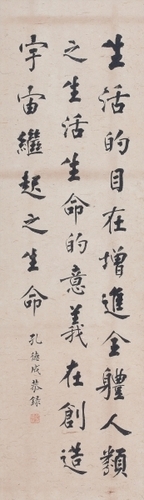 生活的目在增進全體人類
之生活生命的意義在創造
宇宙繼起之生命
孔德成恭録